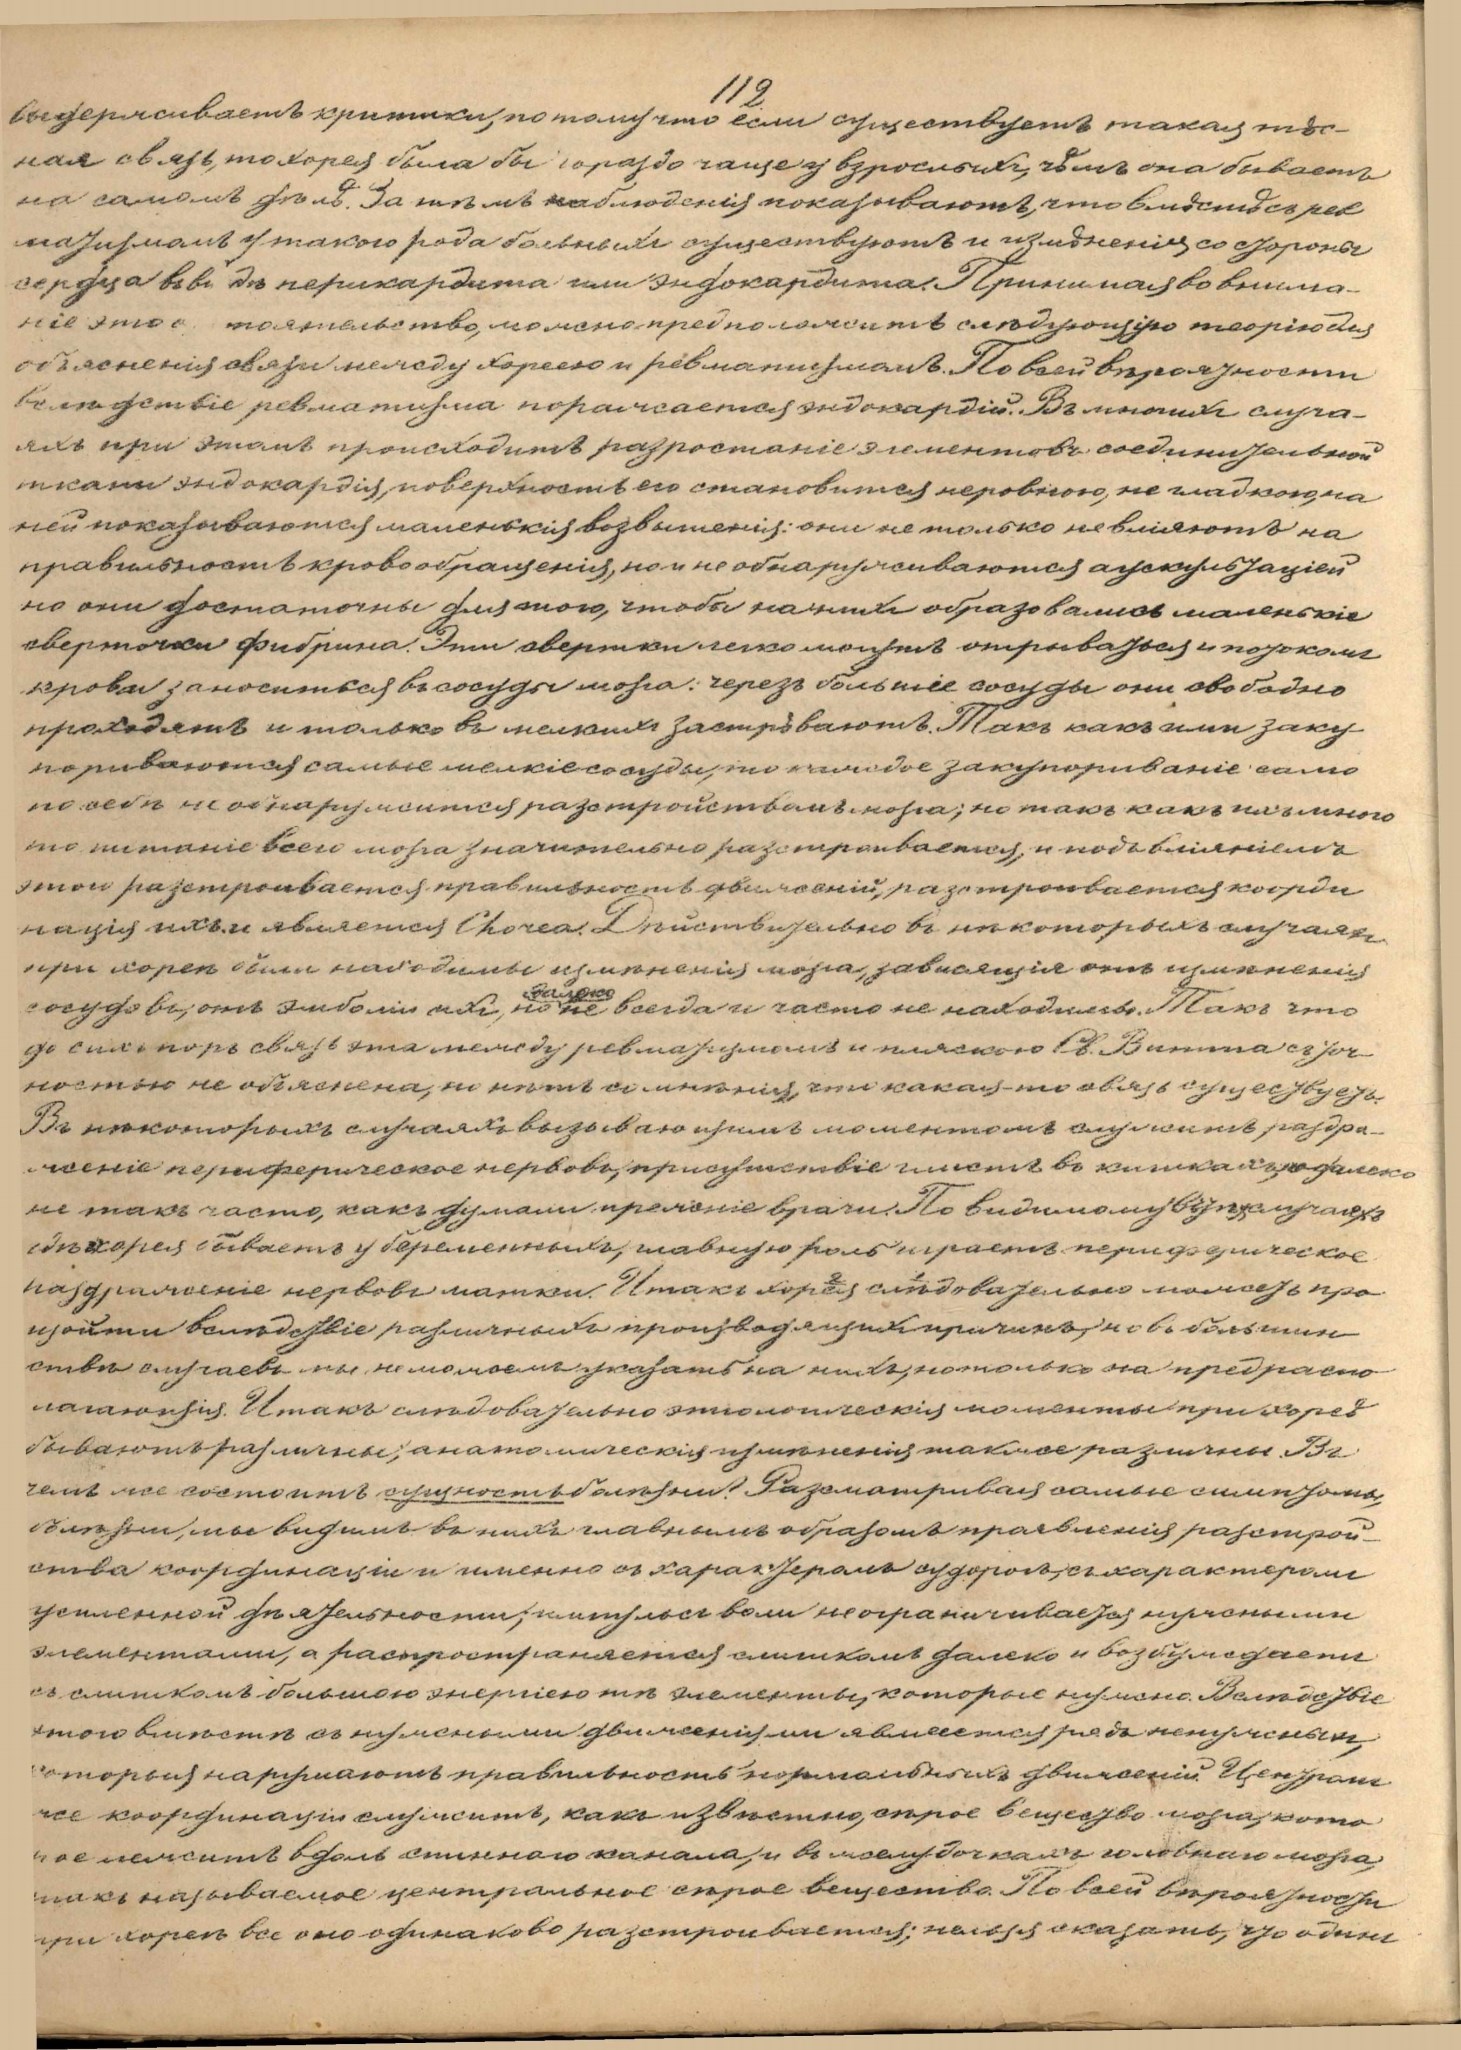 112
выдерживаетъ критики, потому что если существуетъ такая тѣс-
ная связь, то хорея была бы гораздо чаще у взрослыхъ, чѣмъ она бываетъ
на самомъ дѣлѣ. Затѣмъ наблюденія показываютъ, что вмѣстѣ съ рев
матизмомъ у такого рода больныхъ существуютъ и измѣненія со стороны
сердца въ видѣ перикардита или эндокардита. Принимая во внима-
ніе это о тоятельство, можно предположить слѣдующую теорію для
объясненія связи между хореею и ревматизмомъ. По всей вѣроятности
вслѣдствіе ревматизма поражается эндокардій. Въ многихъ случа-
яхъ при этомъ происходитъ разростаніе элементовъ соединительной
ткани эндокардія, поверхность его становится неровною, не гладкою, на
ней показываются маленькія возвышенія: они не только не вліяютъ на
правильность кровообращенія, но и не обнаруживаются аускультаціей
но они достаточны для того, чтобы на нихъ образовались маленькіе
сверточки фибрина. Эти свертки легко могутъ отрываться и потокомъ
крови заноситься въ сосуды мозга: черезъ больше сосуды они свободно
проходятъ и только въ мелкихъ застрѣваютъ. Такъ какъ ими заку
пориваются самые мелкіе сосуды, то каждое закупориваніе само
по себѣ не обнаружится разстройствомъ мозга; но такъ какъ ихъ много
то питаніе всего мозга значительно разстроивается, и подъ вліяніемъ
этого разстроивается правильность движеній, разстроивается коорди
нація ихъ и является Chorea. Дѣйствительно въ нѣкоторыхъ случаяхъ
при хореѣ были находимы измѣненія мозга, зависящія отъ измѣненія
сосудовъ, отъ эмболіи ихъ, но далеко не всегда и часто не находились. Такъ что
до сихъ поръ связь эта между ревматизмомъ и пляскою Св. Витта съ точ
ностью не объяснена, но нѣтъ сомнѣнія, что какая-то связь существуетъ.
Въ нѣкоторыхъ случаяхъ вызывающимъ моментомъ служитъ раздра-
женіе периферическое нервовъ, присутствіе глистъ въ кишкахъ, но далеко
не такъ часто, какъ думали прежніе врачи. По видимому въ тѣхъ случаяхъ
гдѣ хорея бываетъ у беременныхъ, главную роль играетъ периферическое
раздраженіе нервовъ матки. Итакъ хорея слѣдовательно можетъ про
изойти вслѣдствіе различныхъ производящихъ причинъ, но въ большин
ствѣ случаевъ мы не можемъ указать на нихъ, но только на предраспо
лагающія. Итакъ слѣдовательно этіологическія моменты при хореѣ
бываютъ различны; анатомическія измѣненія также различны. Въ
чемъ же состоитъ сущность болѣзни? Разсматривая самые симптомы
болѣзни, мы видимъ въ нихъ главнымъ образомъ проявленія разстрой-
ства координаціи и именно съ характеромъ судорогъ, съ характеромъ
усиленной дѣятельности; импульсъ воли не ограничивается нужными
элементами, а распространяется слишкомъ далеко и возбуждаетъ
съ слишкомъ большою энергіею тѣ элементы, которые нужно. Вслѣдствіе
этого вмѣстѣ съ нужными движеніями является рядъ ненужныхъ,
которыя нарушаютъ правильность нормальныхъ движеній. Центромъ
же координаціи служитъ, какъ извѣстно, сѣрое вещество мозга, кото
рое лежитъ вдоль спиннаго канала, и въ желудочкахъ головнаго мозга,
такъ называемое центральное сѣрое вещество. По всей вѣроятности
при хореѣ все оно одинаково разстроивается; нельзя сказать, что одинъ